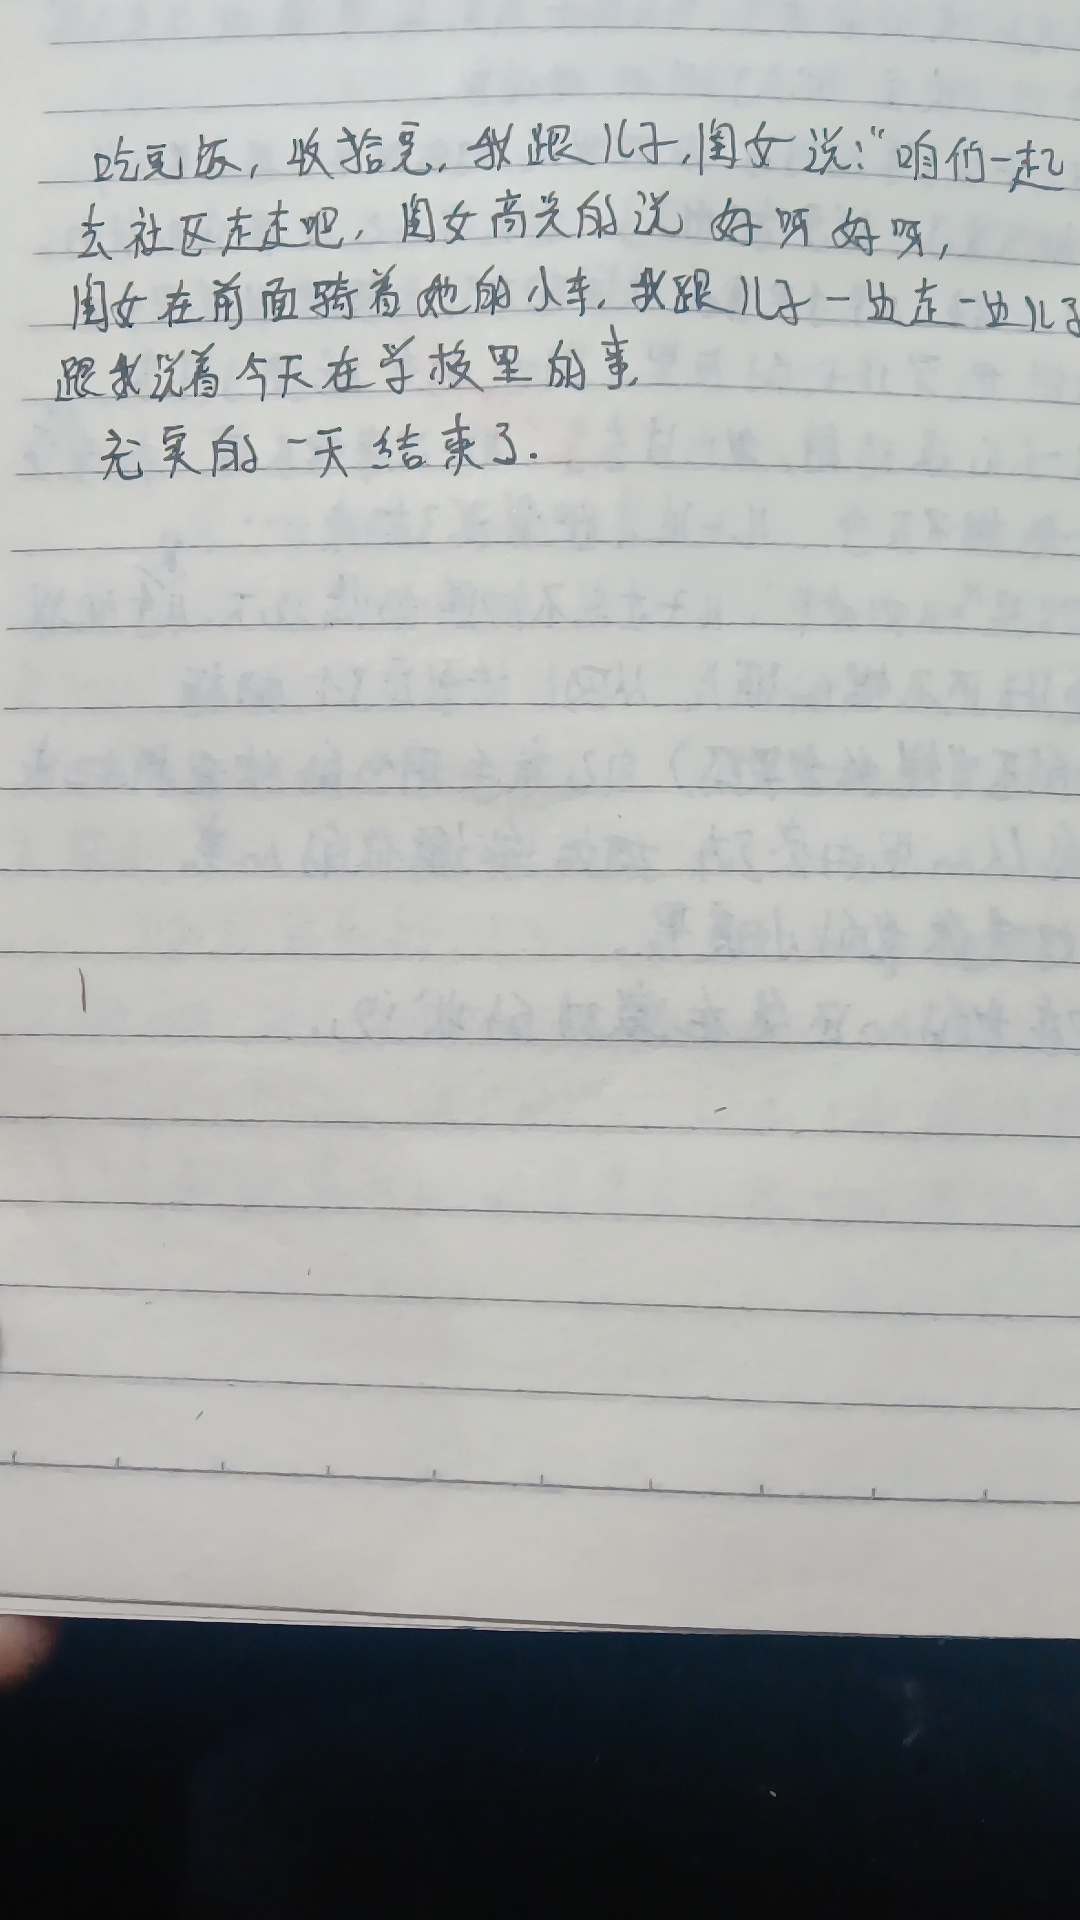 吃完饭，收拾完，我跟儿子，闺女说：“咱们一起
去社区走走吧，闺女高兴的说 好呀好呀，
闺女在前面骑着她的小车，我跟儿子一边走一边儿子
跟我说着今天在学校里的事，
充实的一天结束了.